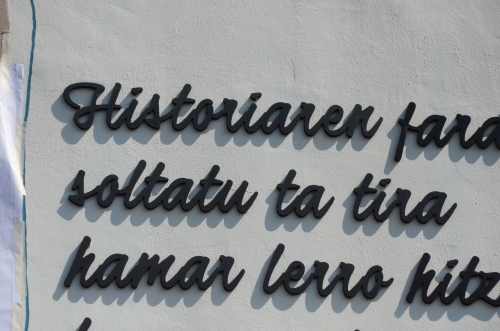 Historiaren fard
soltatu ta tira
hamar lerro hitz